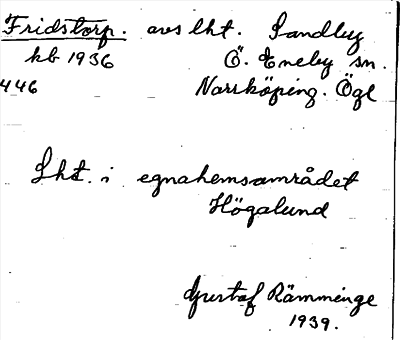 Fridstorp. avs lht. Sandby
kb 1936 Ö. Eneby sn.
446 Norrköping. Ögl
Lht. i egnahemsområdet
Högalund
Gustaf Rämminge
1939.